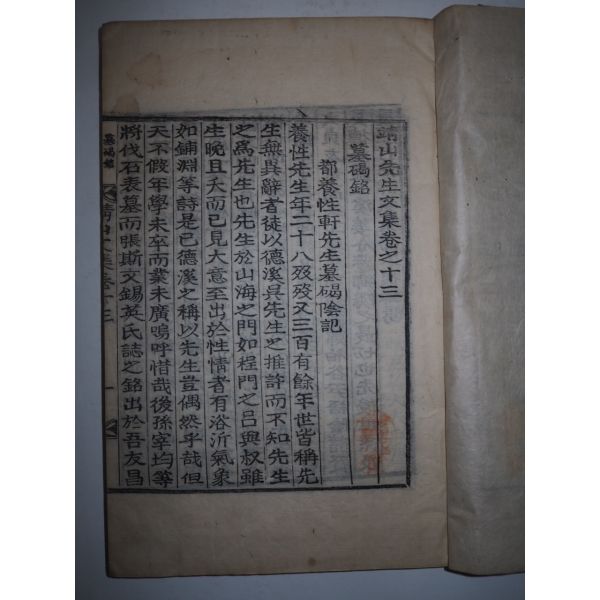 靖山先生文集卷之十三
墓碣銘
都養性軒先生墓碣陰記
養性先生年二十八歿歿又三百有餘年世皆稱先
生無異辭者徒以德溪吳先生之推許而不知先生
之爲先生也先生於山海之門如程門之呂與叔雖
生晩且夭而已見大意至出於性情者有浴沂氣象
如鋪淵等詩是已德溪之稱以先生豈偶然乎哉但
天不假年學未卒而業未廣嗚呼惜哉後孫宰均等
將伐石表墓而張斯文錫英氏誌之銘出於吾友昌
墓碣銘
文集卷十三
一